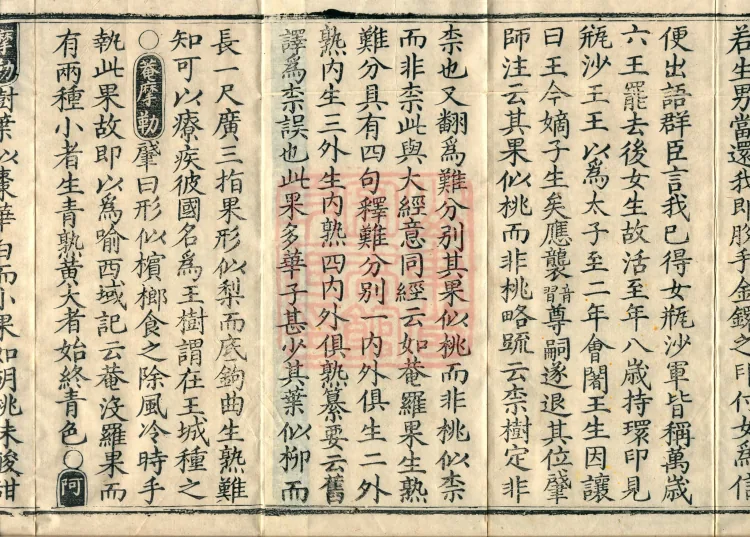 若生男當還我即脫手金鐶之印付女爲信
便出語群臣言我已得女瓶沙軍皆稱萬歲
六王罷去後女生故活至年八歲持環印見
瓶沙王王以爲太子至二年會闍王生因讓
曰王今嫡子生矣應襲音習尊嗣遂退其位肇
師注云其果似桃而非桃略䟽云柰樹定非
柰也又翻爲難分別其果似桃而非桃似柰
而非柰此與大經意同經云如菴羅果生熟
難分具有四句釋難分別一内外俱生二外
熟内生三外生内熟四内外俱熟纂要云舊
譯爲柰誤也此果多華子甚少其葉似柳而
長一尺廣三指果形似梨而底鉤曲生熟難
知可以療疾彼國名爲王樹謂在王城種之
○菴摩勒肇曰形似檳榔食之除風冷時手
執此果故即以爲喻西域記云菴沒羅果而
有兩種小者生青熟黄大者始終青色○阿
摩勒樹葉似棗華白而小果如胡桃味酸甜